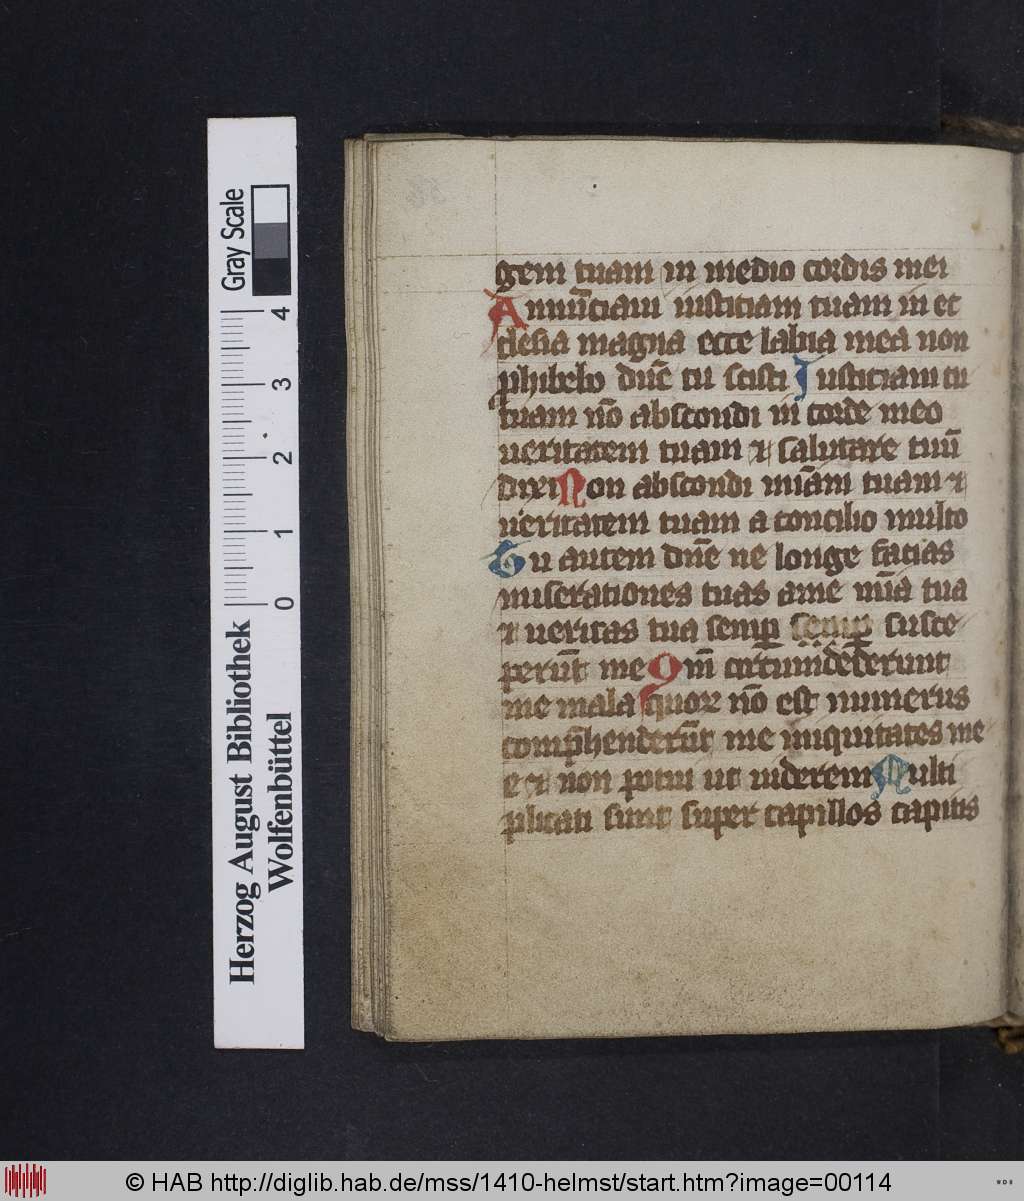 Gray Scale
0 1 2 3 4
Herzog August Bibliothek
Wolfenbüttel
gem tuam in medio cordis mei
Annūciaui iusticiam tuam in ec
clesia magna ecce labia mea non
ꝓhibebo dn̄e tu scisti Iusticiam tu
tuam nō abscondi in corde meo
ueritatem tuam ⁊ salutare tuū
dixi Non abscondi mīam tuam ⁊
ueritatem tuam a concilio multo
Tu autem dn̄e ne longe facias
miserationes tuas a me mīa tua
⁊ ueritas tua semꝑ semꝑ susce
perūt me Qm̄ circumdederunt
me mala quoꝝ nō est numerus
comp̄henderūt me iniquitates me
e ⁊ non potui ut uiderem Multi
plicati sunt super capillos capitis
© HAB http://diglib.hab.de/mss/1410-helmst/start.htm?image=00114